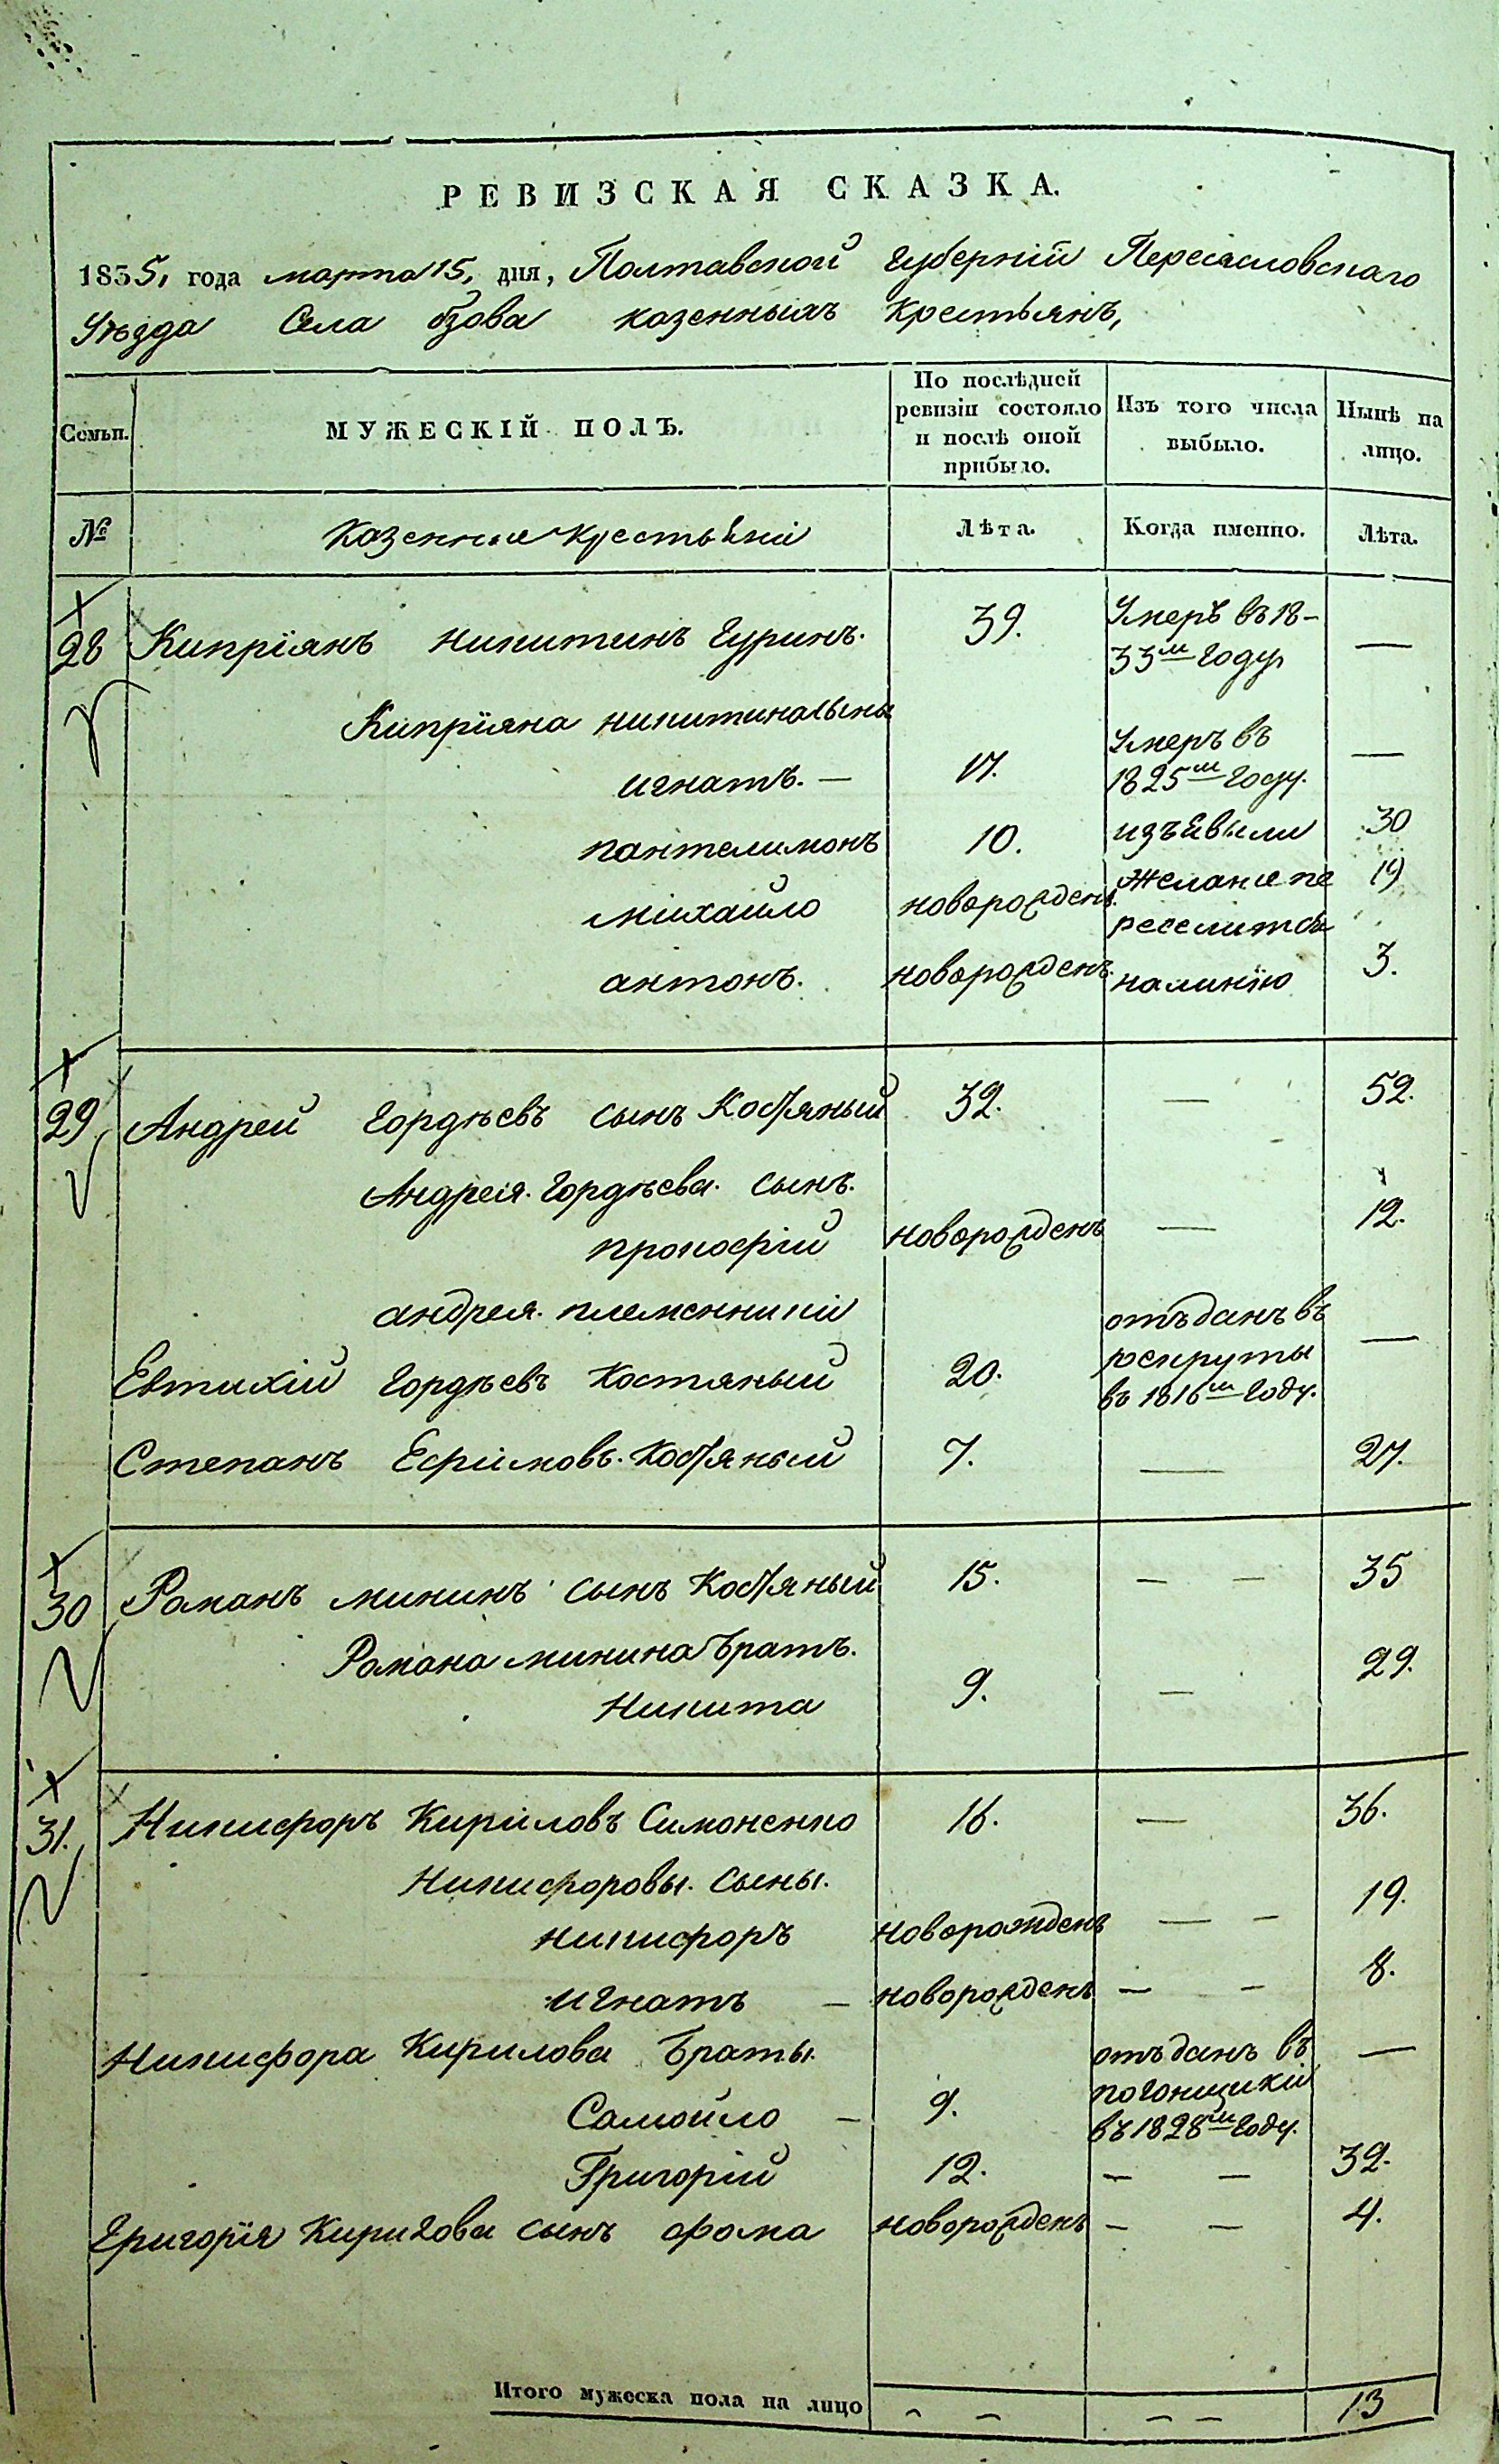 РЕВИЗСКАЯ СКАЗКА.
1835, года марта 15, дня, Полтавской Губерніи Переясловскаго
Уѣзда Села бзова казенныхъ крестьянъ,
Семьи. МУЖЕСКІЙ ПОЛЪ. По послѣдней ревизіи состояло и послѣ оной прибыло. Изъ того числа выбыло. Нынѣ на лицо.
№ Казенные крестьяни Лѣта. Когда именно. Лѣта.
28 Кипріянъ никитинъ Гуринъ. 39. Умеръ въ 18-
33м году —
Кипріяна никитина сыны
игнатъ. — 17. Умеръ въ
1825м году. —
пантелимонъ 10. изъявили 30
михайло новорожденъ. желание пе 19
реселитсь
антонъ. новорожденъ. налинію 3.
29 Андрей Гордѣевъ сынъ Костяный 32. — 52.
Андрея Гордѣева сынъ.
прокофій новорожденъ — 12.
андрея племенники
Евтихій Гордѣевъ Костяный 20. отъданъ въ
рекруты
въ 1816м году. —
Степанъ Ефимовъ Костяный 7. — 27.
30 Романъ мининъ сынъ Костяный 15. — — 35
Романа минина братъ.
Никита 9. — 29.
31. Никифоръ Кириловъ Симоненко 16. — 36.
Никифоровы сыны.
никифоръ новорожденъ — — 19.
игнатъ — новорожденъ — — 8.
Никифора Кирилова браты.
Самойло — 9. отъданъ въ
погонщики
въ 1828м году. —
Григорій 12. — — 32.
Григорія Кирилова сынъ фома новорожденъ — — 4.
Итого мужеска пола на лицо — — — — 13